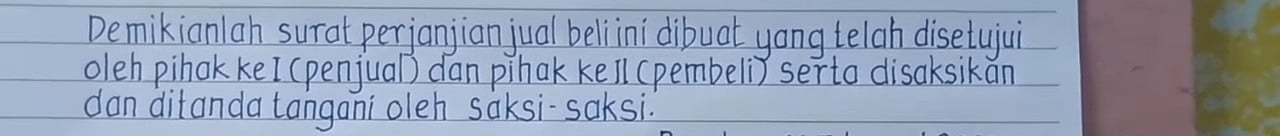 Demikianlah surat perjanjian jual beli ini dibuat yang telah disetujui
oleh pihak ke I (penjual) dan pihak ke II (pembeli) serta disaksikan
dan ditanda tangani oleh saksi-saksi.